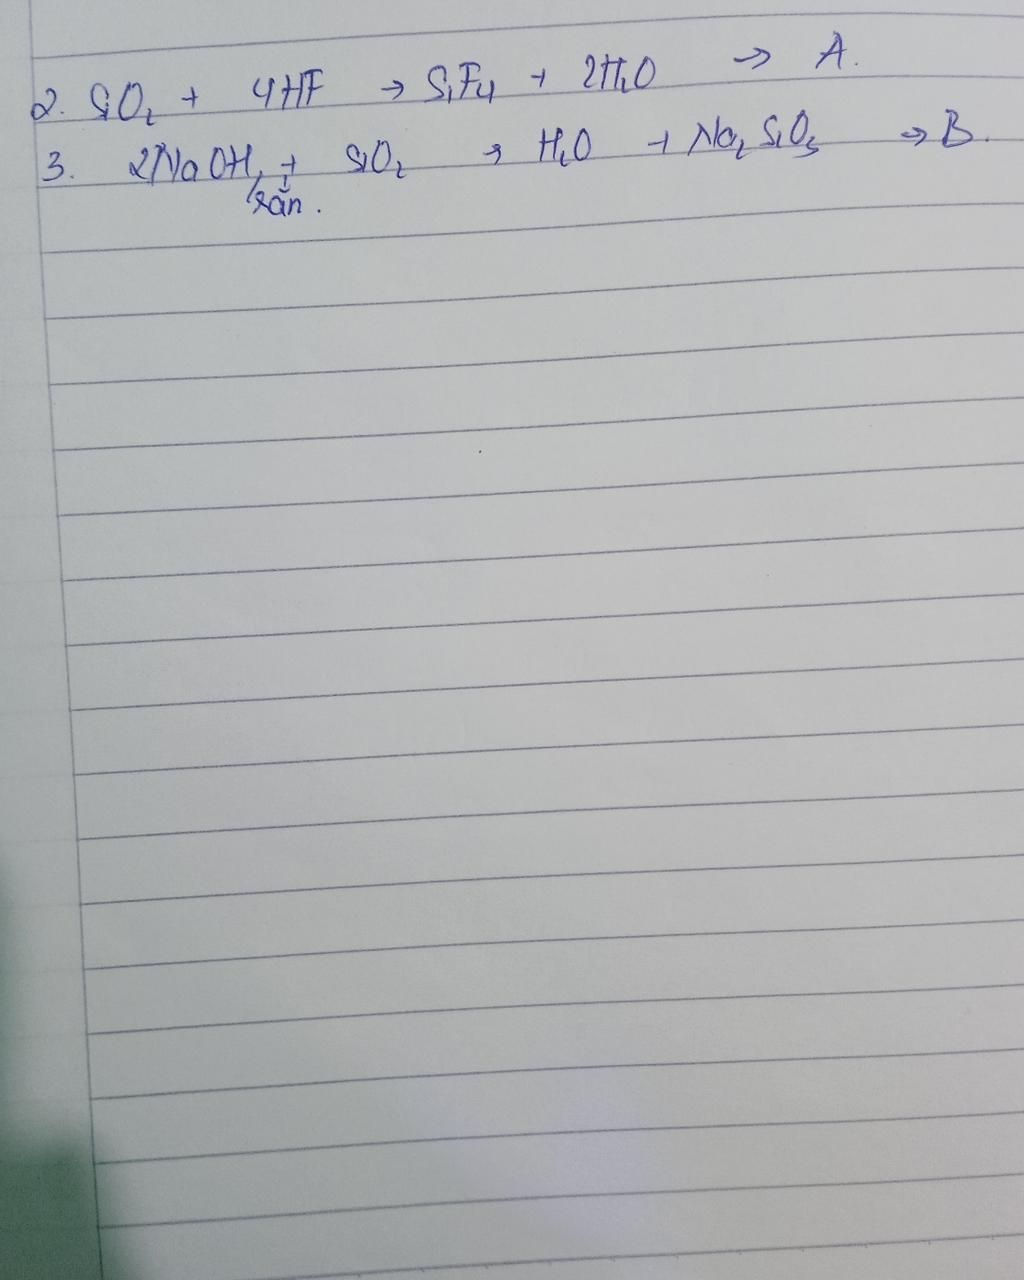 2. SiO₂ + 4HF → SiF₄ + 2H₂O → A.
3. 2NaOH + SiO₂ → H₂O + Na₂SiO₃ → B.
rắn.